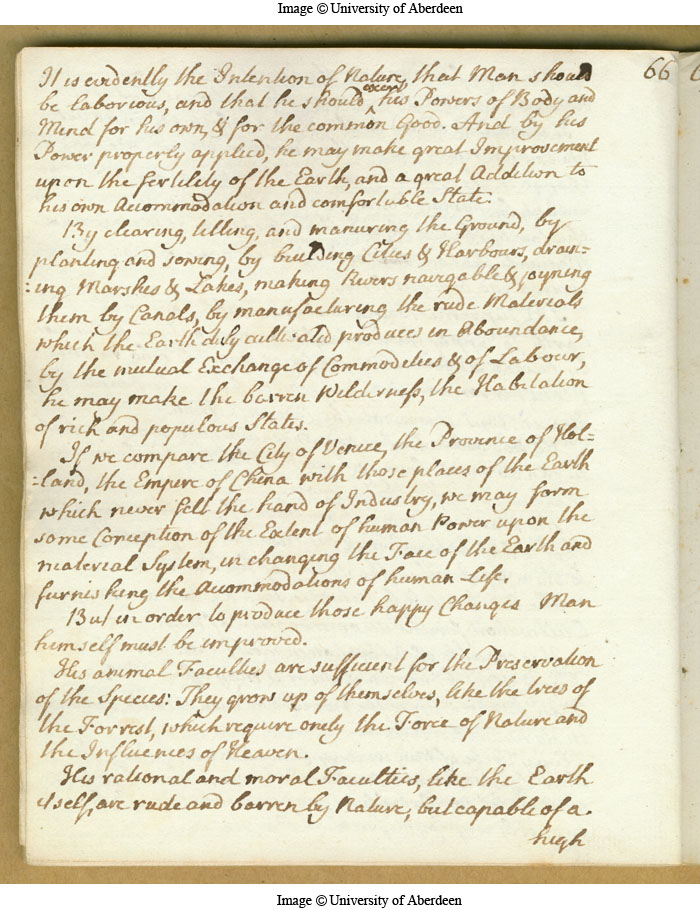 Image © University of Aberdeen
It is evidently the Intention of Nature, that Man should
be laborious, and that he should exert his Powers of Body and
Mind for his own, & for the common Good. And by his
Power properly applied, he may make great Improvement
upon the fertility of the Earth, and a great Addition to
his own Accommodation and comfortable State.
By clearing, tilling, and manuring the Ground, by
planting and sowing, by building Cities & Harbours, drain-
:ing Marshes & Lakes, making Rivers navigable & joyning
them by Canals, by manufacturing the rude Materials
which the Earth duly cultivated produces in Aboundance,
by the mutual Exchange of Commodities & of Labour,
he may make the barren Wilderness, the Habitation
of rich and populous States.
If we compare the City of Venice, the Province of Hol-
:land, the Empire of China with those places of the Earth
which never felt the hand of Industry, we may form
some Conception of the Extent of human Power upon the
material System, in changing the Face of the Earth and
furnishing the Accommodations of human Life.
But in order to produce those happy Changes Man
himself must be improved.
His animal Faculties are sufficient for the Preservation
of the Species: They grow up of themselves, like the trees of
the Forrest, which require onely the Force of Nature and
the Influences of Heaven.
His rational and moral Faculties, like the Earth
itself, are rude and barren by Nature, but capable of a
high
66
Image © University of Aberdeen